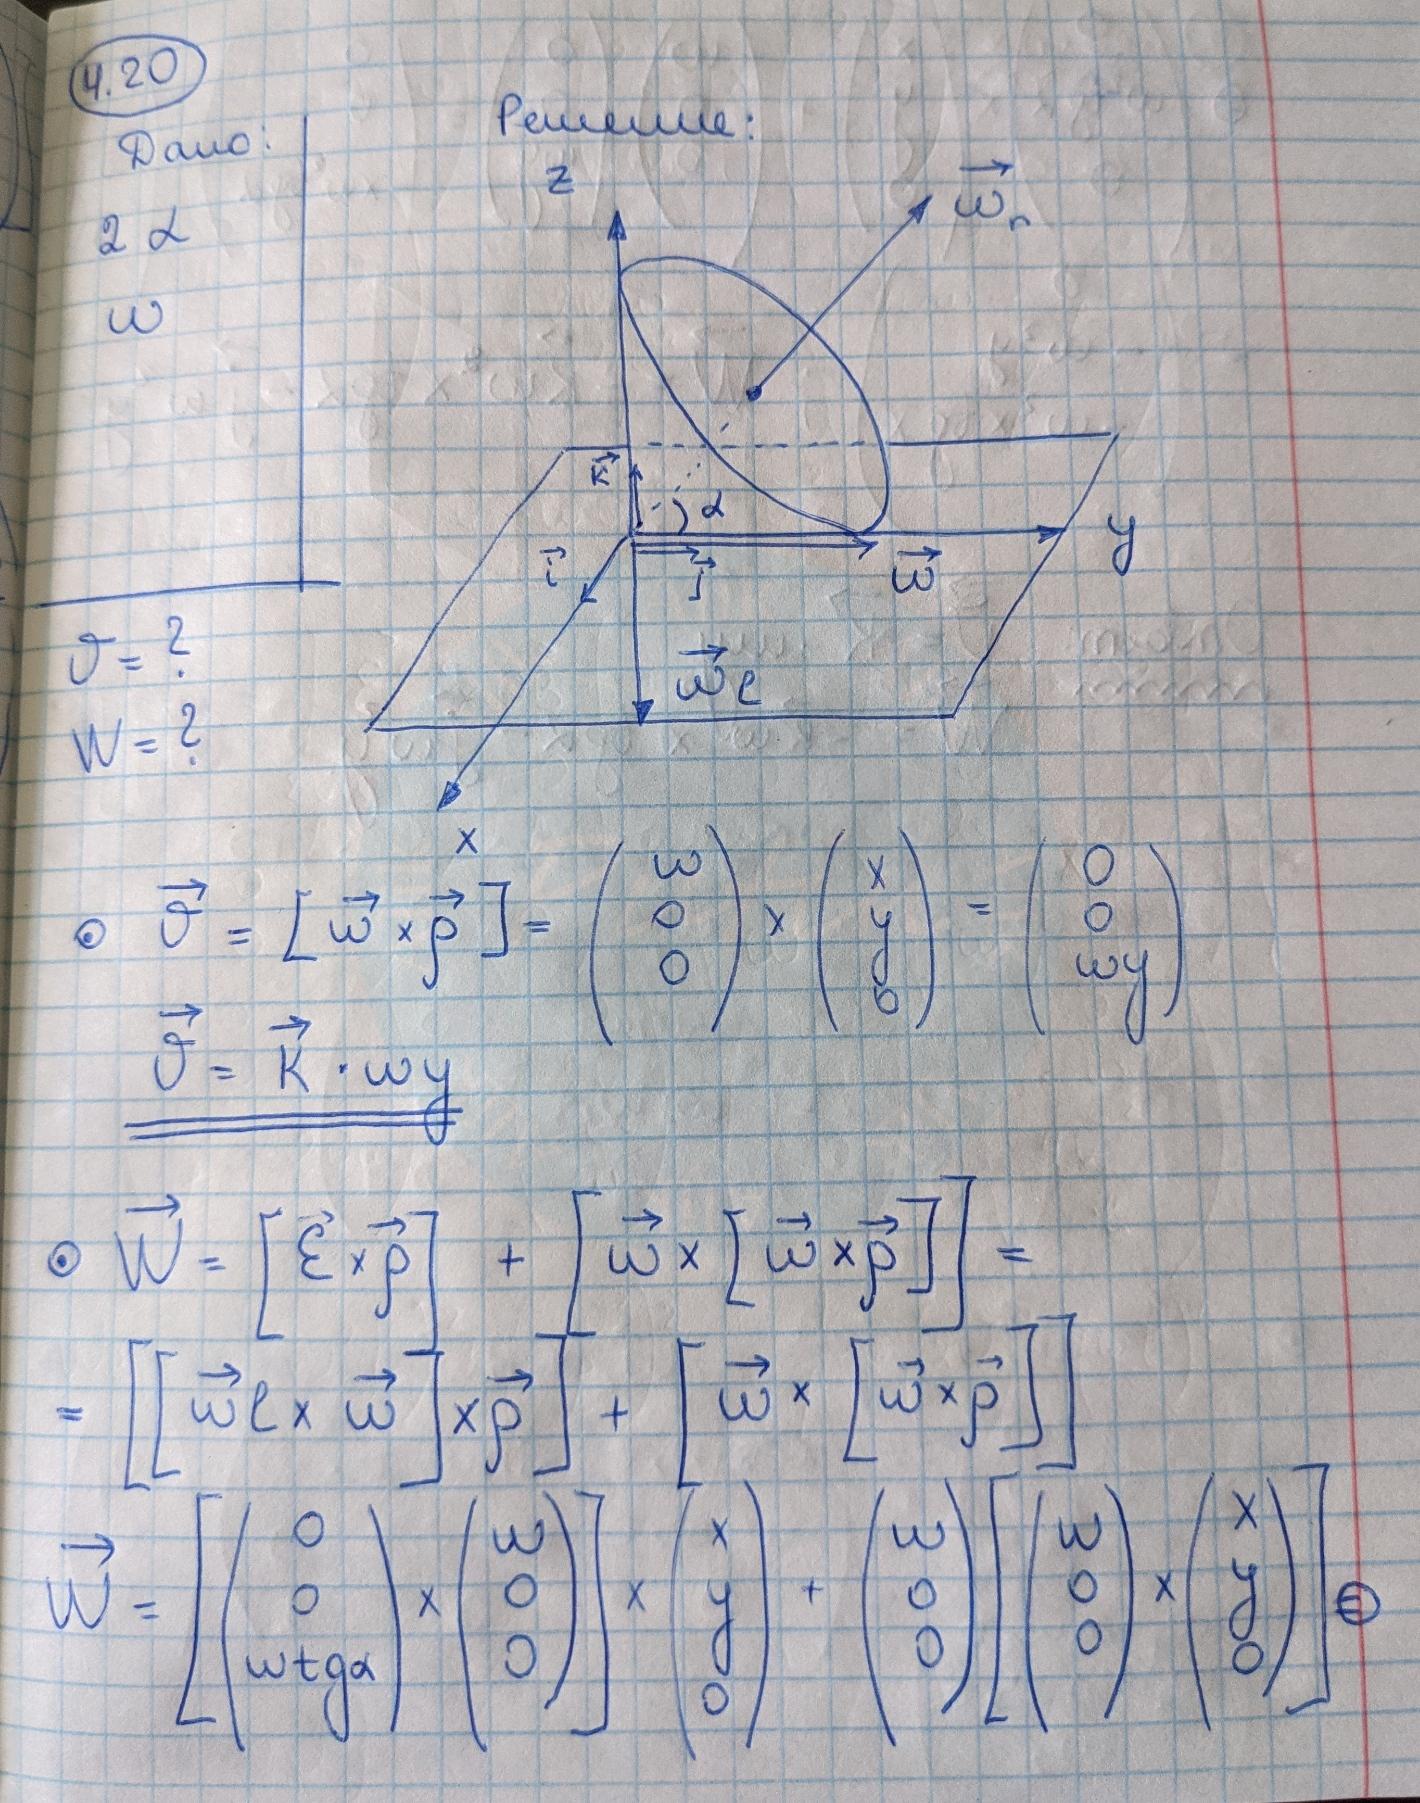 4.20
Дано:
2α
ω
v = ?
W = ?
Решение:
z
ω⃗r
k⃗
α
i⃗
j⃗
ω⃗
y
ω⃗e
x
v⃗ = [ω⃗ × ρ⃗] = (ω 0 0) × (x y 0) = (0 0 ωy)
v⃗ = k⃗ · ωy
W⃗ = [ε⃗ × ρ⃗] + [ω⃗ × [ω⃗ × ρ⃗]] =
= [[ω⃗e × ω⃗] × ρ⃗] + [ω⃗ × [ω⃗ × ρ⃗]]
W⃗ = [(0 0 ωtgα) × (ω 0 0)] × (x y 0) + (ω 0 0) [(ω 0 0) × (x y 0)] ⊜